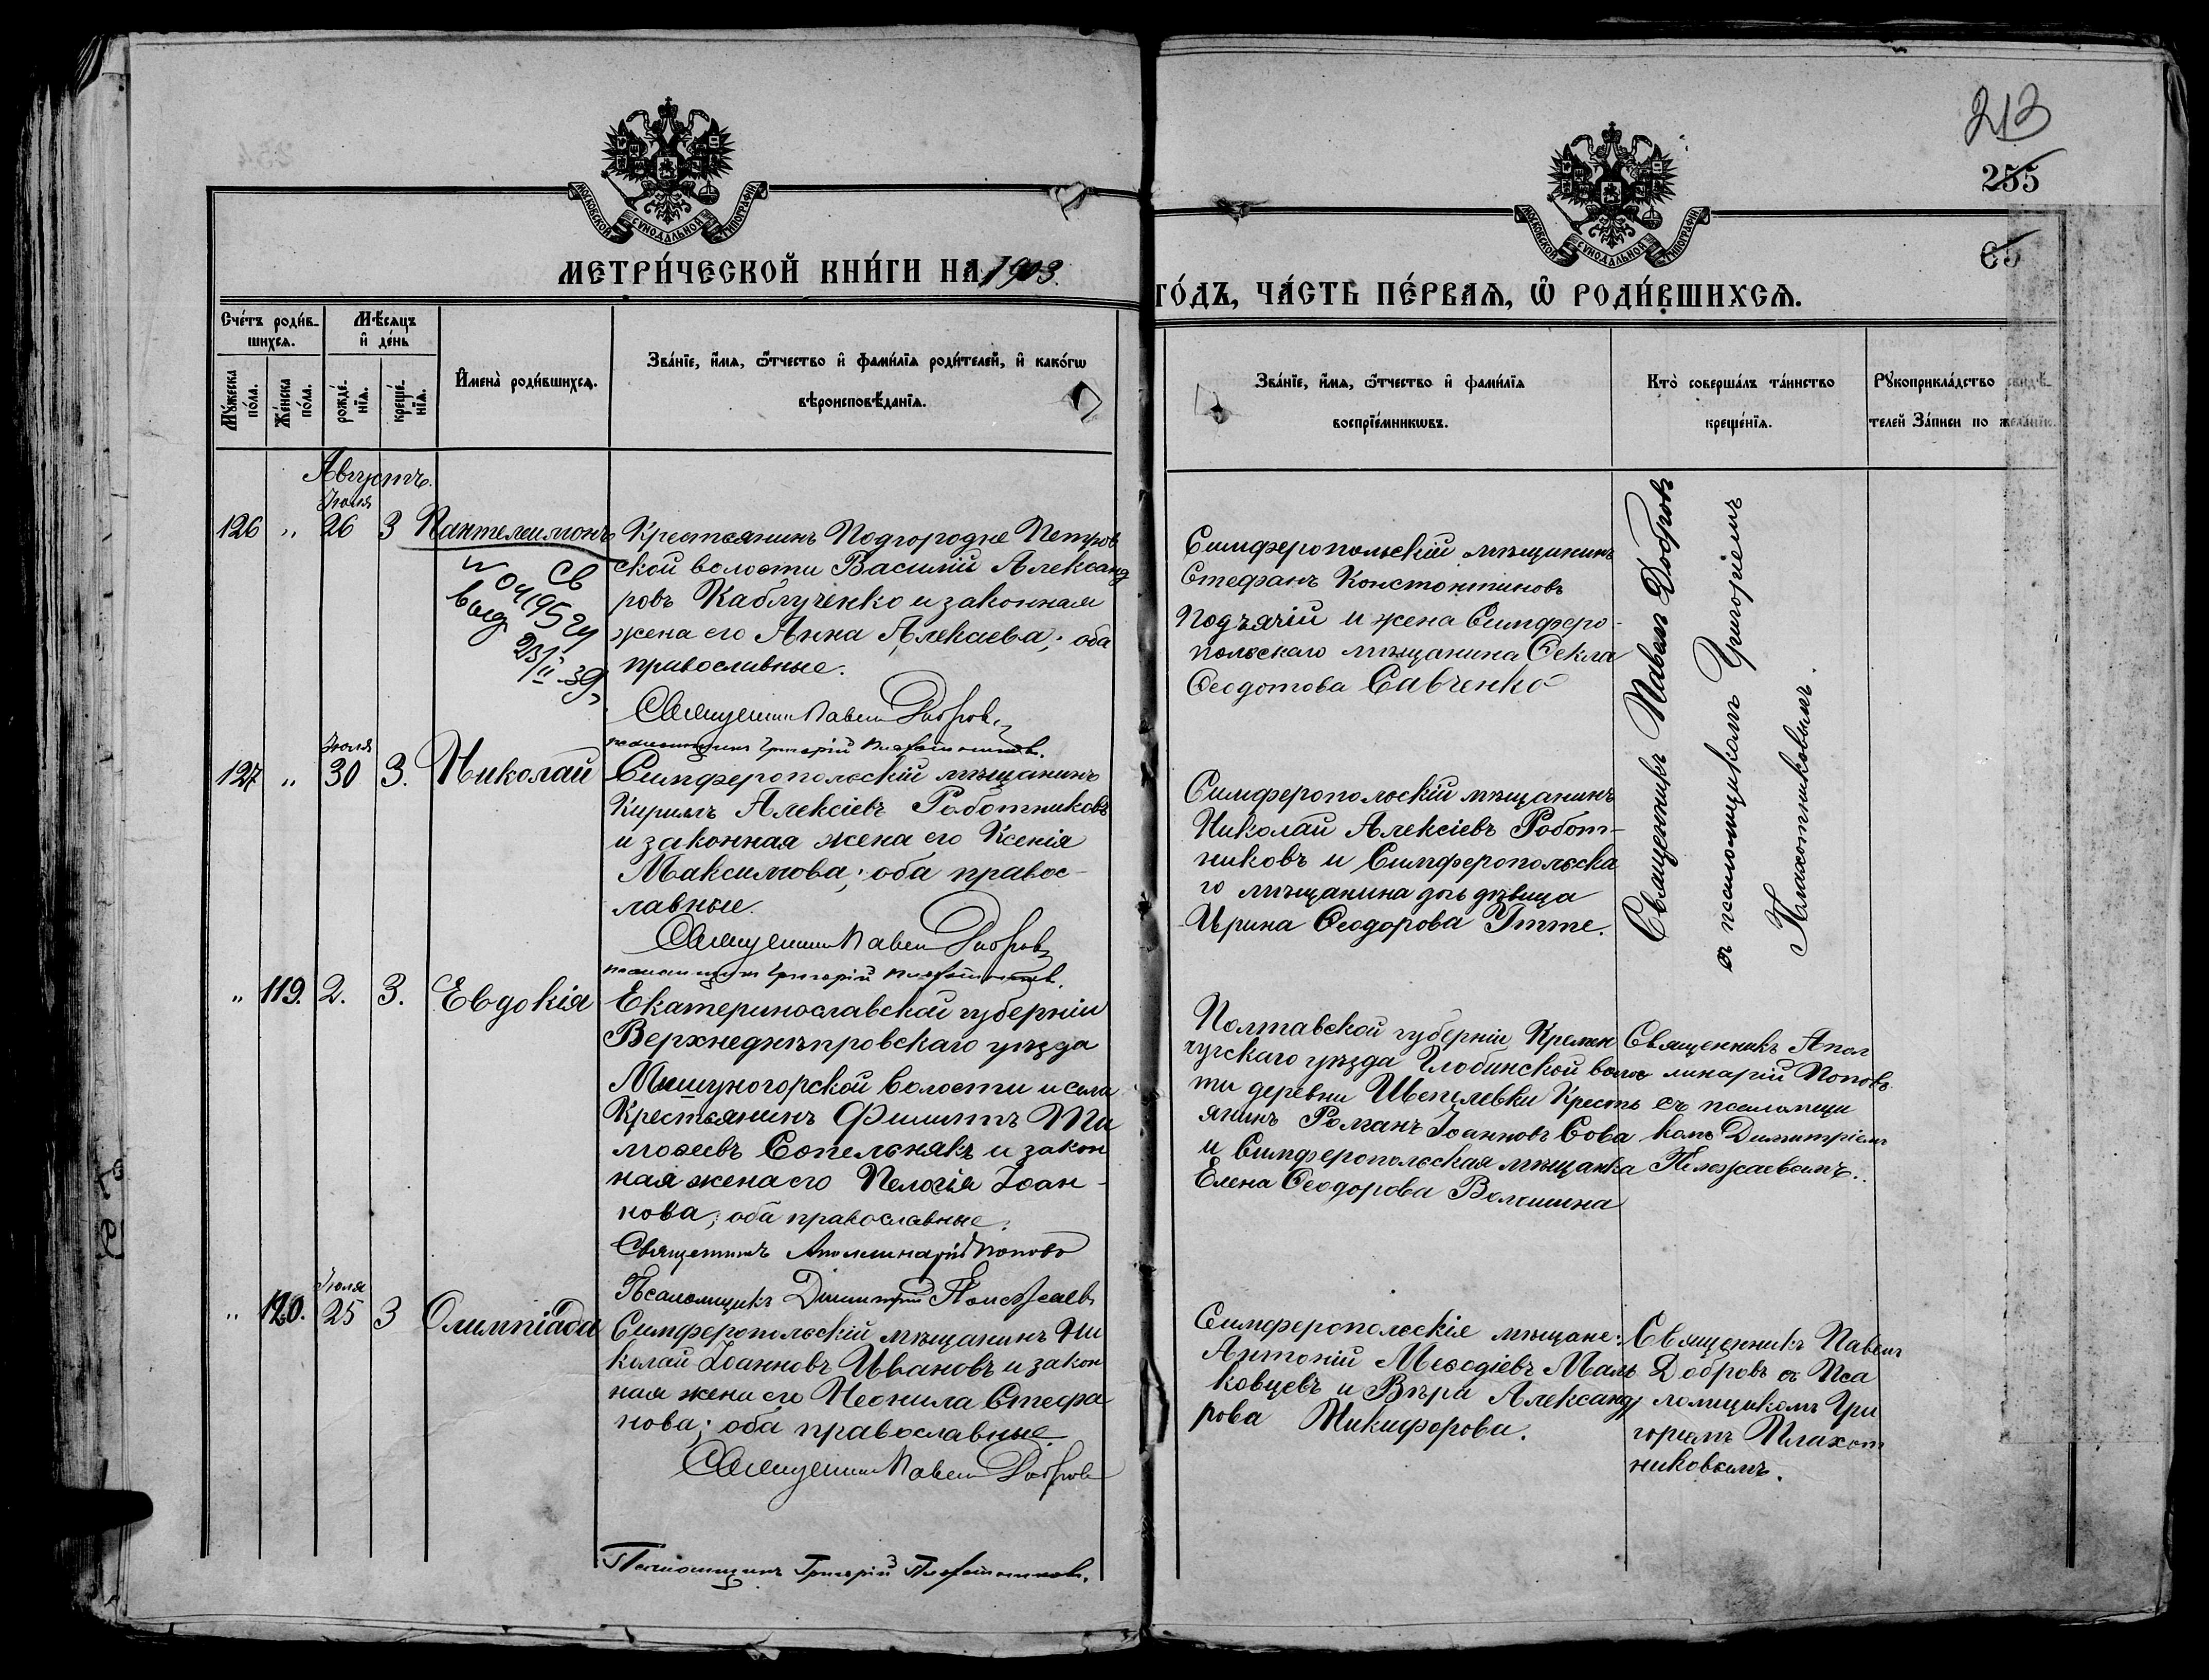 213
255
65
МОСКОВСКОЙ СУНОДАЛЬНОЙ ТИПОГРАФІИ
МОСКОВСКОЙ СУНОДАЛЬНОЙ ТИПОГРАФІИ
МЕТРИ́ЧЕСКОЙ КНИ́ГИ НА 1903.
ГО́ДЪ, ЧА́СТЬ ПЕ́РВАѦ, Ѡ҆ РОДИ́ВШИХСѦ.
Сче́тъ роди́в-
шихсѧ.
Мѣ́сѧцъ
и҆ де́нь
Мꙋ́жеска
по́ла.
Же́нска
по́ла.
рожде́-
нїѧ.
креще́-
нїѧ.
И҆мена̀ роди́вшихсѧ.
Зва́нїе, и҆́мѧ, ѻ҆́тчество и҆ фами́лїѧ роди́телей, и҆ како́гѡ
вѣроисповѣ́данїѧ.
Зва́нїе, и҆́мѧ, ѻ҆́тчество и҆ фами́лїѧ
воспрїе́мникѡвъ.
Кто̀ соверша́лъ та́инство
креще́нїѧ.
Рꙋкоприкла́дство свидѣ́-
телей За́писи по жела́нїю.
Августъ.
Іюля
126 " 26 3 Пантелеимонъ
Св
0419524
выд
23/II 39
Крестьянинъ Подгородне Петров
ской волости Василій Александ
ровъ Каблученко и законная
жена его Анна Алексѣева; оба
православные.
Священникъ Павелъ Добровъ
псаломщикъ Григорій Плахотниковъ.
Симферопольскій мѣщанинъ
Стефанъ Константиновъ
Подъячій и жена Симферо-
польскаго мѣщанина Ѳекла
Ѳеодотова Савченко
Священникъ Павелъ Добровъ
съ псаломщикомъ Григоріемъ
Плахотниковымъ.
Іюля
127 " 30 3. Николай
Симферопольскій мѣщанинъ
Кириллъ Алексіевъ Работниковъ
и законная жена его Ксенія
Максимова; оба правос-
лавные.
Священникъ Павелъ Добровъ
псаломщикъ Григорій Плахотниковъ.
Симферопольскій мѣщанинъ
Николай Алексіевъ Работ-
никовъ и Симферопольска
го мѣщанина дочь дѣвица
Ирина Ѳеодорова Утте.
" 119. 2. 3. Евдокія
Екатеринославской губерніи
Верхнеднѣпровскаго уѣзда
Мишуногорской волости и села
Крестьянинъ Филиппъ Ти
моѳеевъ Сопельнякъ и закон
ная жена его Пелагія Іоан-
нова; оба православные.
Священникъ Аполлинарій Поповъ
Псаломщикъ Димитрій
Полтавской губерніи Кремен
чугскаго уѣзда Глобинской волос
ти деревни Шепелевки Кресть
янинъ Романъ Іоанновъ Сова
и Симферопольская мѣщанка
Елена Ѳеодорова Волошина
Священникъ Апол
линарій Поповъ
съ псаломщи
комъ Димитріемъ
Іюля
" 120. 25 3 Олимпіада
Симферопольскій мѣщанинъ Ни
колай Іоанновъ Ивановъ и закон
ная жена его Неонила Стефа
нова; оба православные.
Священникъ Павелъ Добровъ
Псаломщикъ Григорій Плахотниковъ.
Симферопольскіе мѣщане:
Антоній Меѳодіевъ Маль
ковцевъ и Вѣра Александ
рова Никифорова.
Священникъ Павелъ
Добровъ съ Пса
ломщикомъ Гри
горіемъ Плахот
никовымъ.